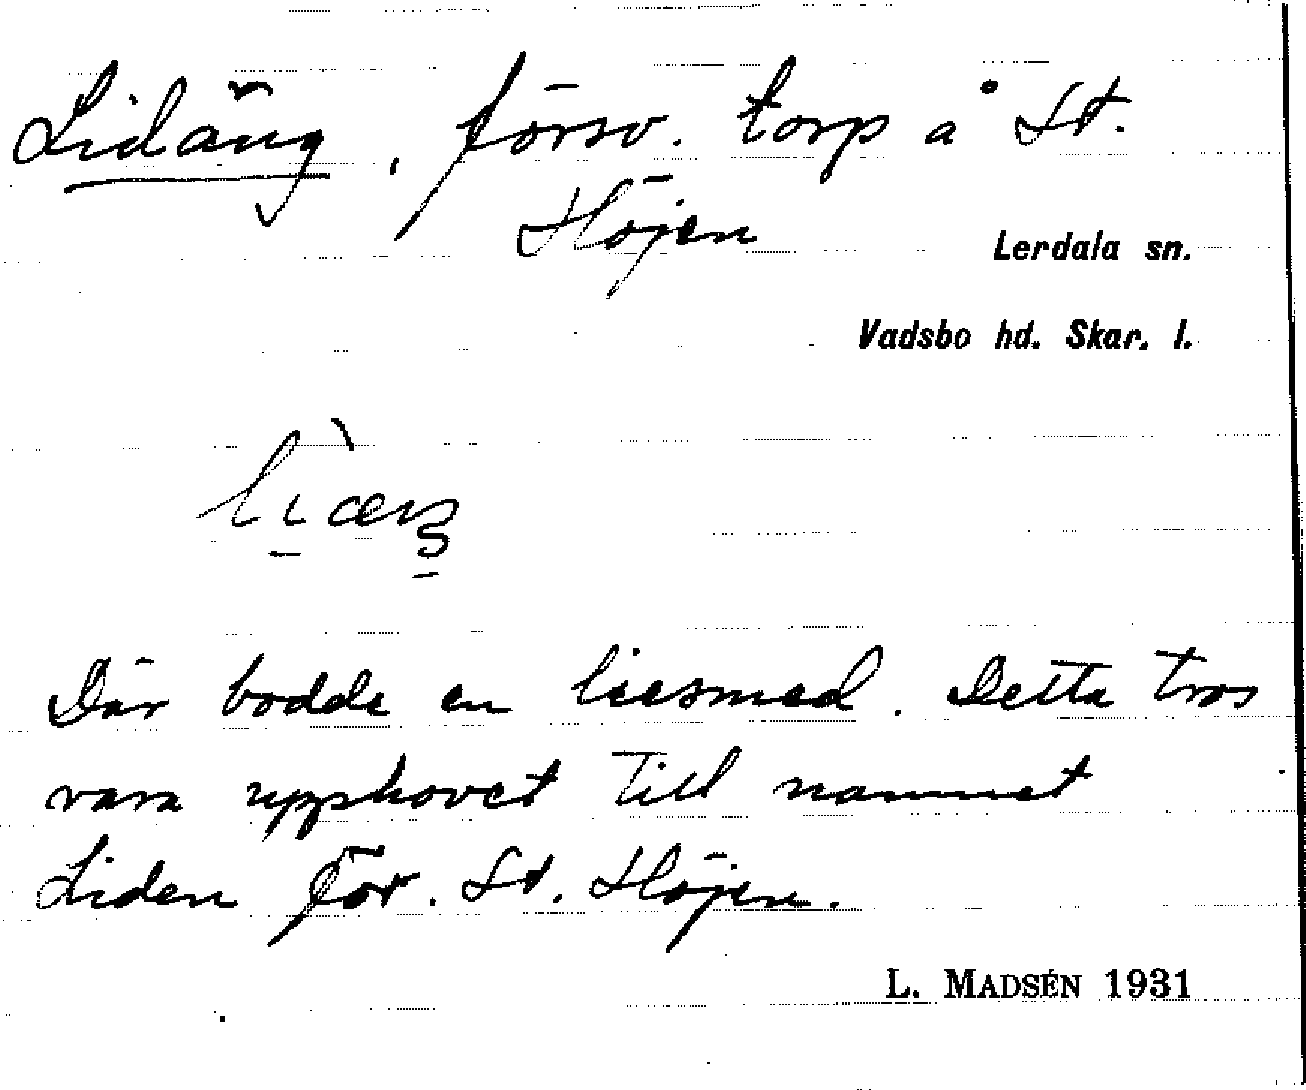 Lidäng, försv. torp å St.
Höjen
Lerdala sn.
Vadsbo hd. Skar. l.
Där bodde en liesmed. Detta tros
vara upphovet till namnet
Liden för. St. Höjen.
L. MADSÉN 1931